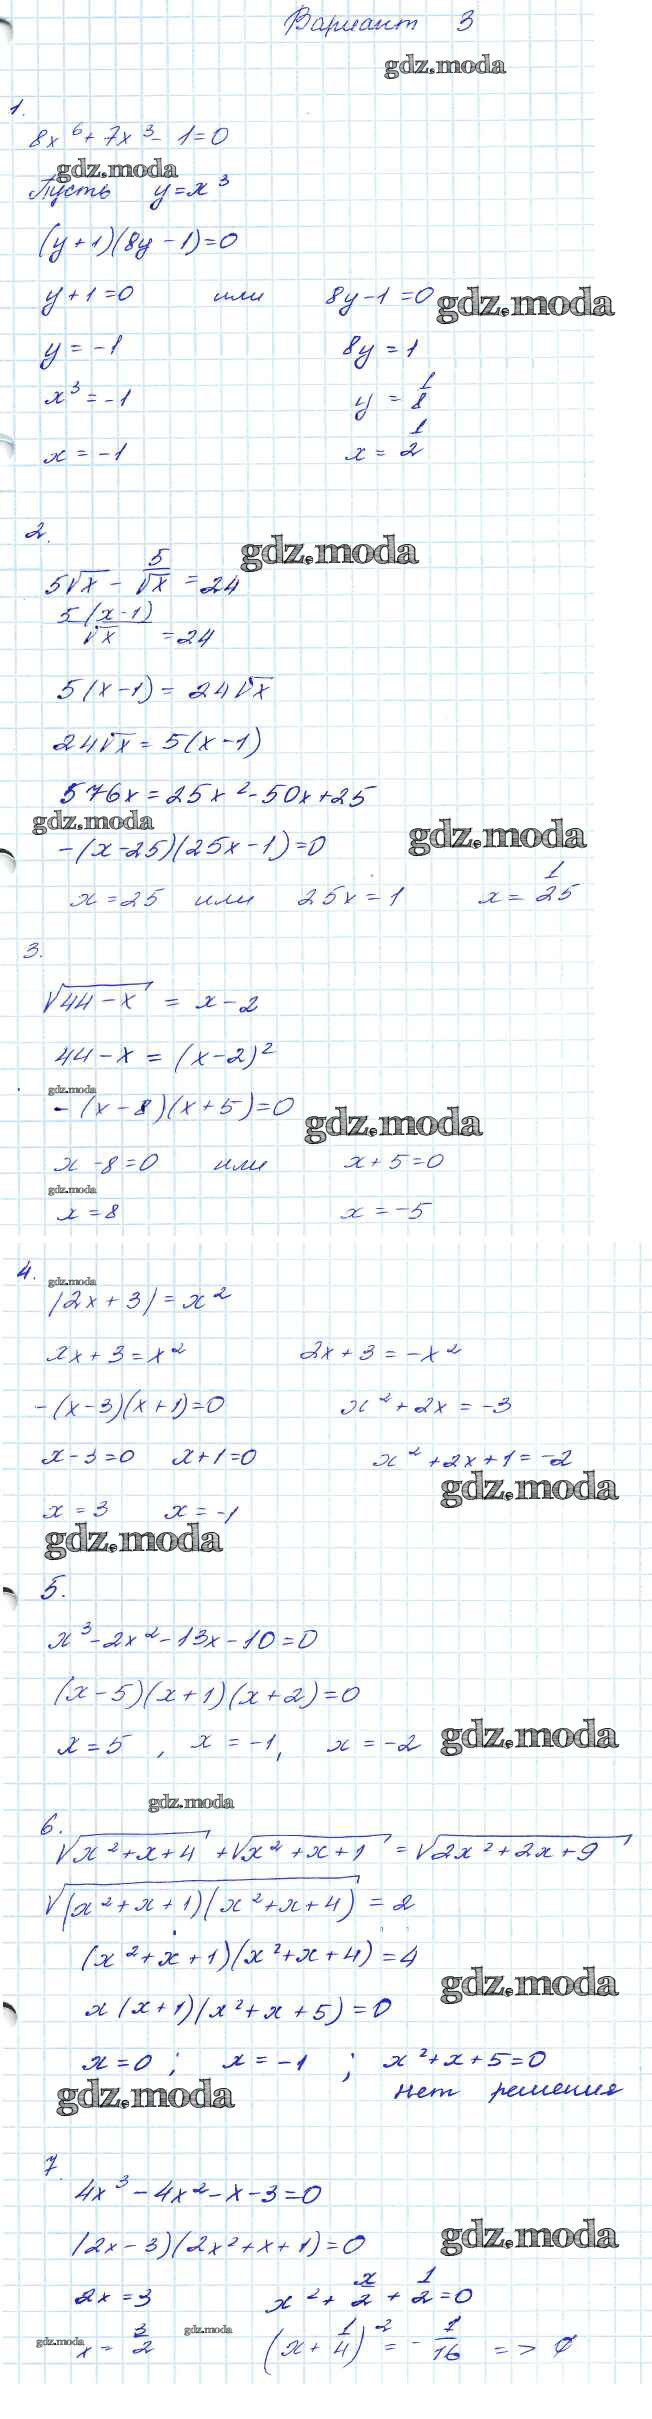 Вариант 3
gdz.moda
1.
8x⁶ + 7x³ - 1 = 0
gdz.moda
Пусть y = x³
(y + 1)(8y - 1) = 0
y + 1 = 0 или 8y - 1 = 0 gdz.moda
y = -1 8y = 1
x³ = -1 y = 1/8
x = -1 x = 1/2
2.
gdz.moda
5√x - 5/√x = 24
5(x-1)/√x = 24
5(x-1) = 24√x
24√x = 5(x-1)
576x = 25x² - 50x + 25
gdz.moda gdz.moda
-(x-25)(25x-1) = 0
x = 25 или 25x = 1 x = 1/25
3.
√(44-x) = x-2
44-x = (x-2)²
gdz.moda
-(x-8)(x+5) = 0 gdz.moda
x-8 = 0 или x+5 = 0
gdz.moda
x = 8 x = -5
4. gdz.moda
|2x+3| = x²
2x+3 = x² 2x+3 = -x²
-(x-3)(x+1) = 0 x²+2x = -3
x-3 = 0 x+1 = 0 x²+2x+1 = -2
gdz.moda
x = 3 x = -1
gdz.moda
5.
x³-2x²-13x-10 = 0
(x-5)(x+1)(x+2) = 0
x = 5, x = -1, x = -2 gdz.moda
gdz.moda
6.
√(x²+x+4) + √(x²+x+1) = √(2x²+2x+9)
√((x²+x+1)(x²+x+4)) = 2
(x²+x+1)(x²+x+4) = 4
gdz.moda
x(x+1)(x²+x+5) = 0
x = 0; x = -1; x²+x+5 = 0
gdz.moda нет решения
7.
4x³-4x²-x-3 = 0
(2x-3)(2x²+x+1) = 0 gdz.moda
2x = 3 x² + x/2 + 1/2 = 0
gdz.moda x = 3/2 gdz.moda (x + 1/4)² = -1/16 => ∅